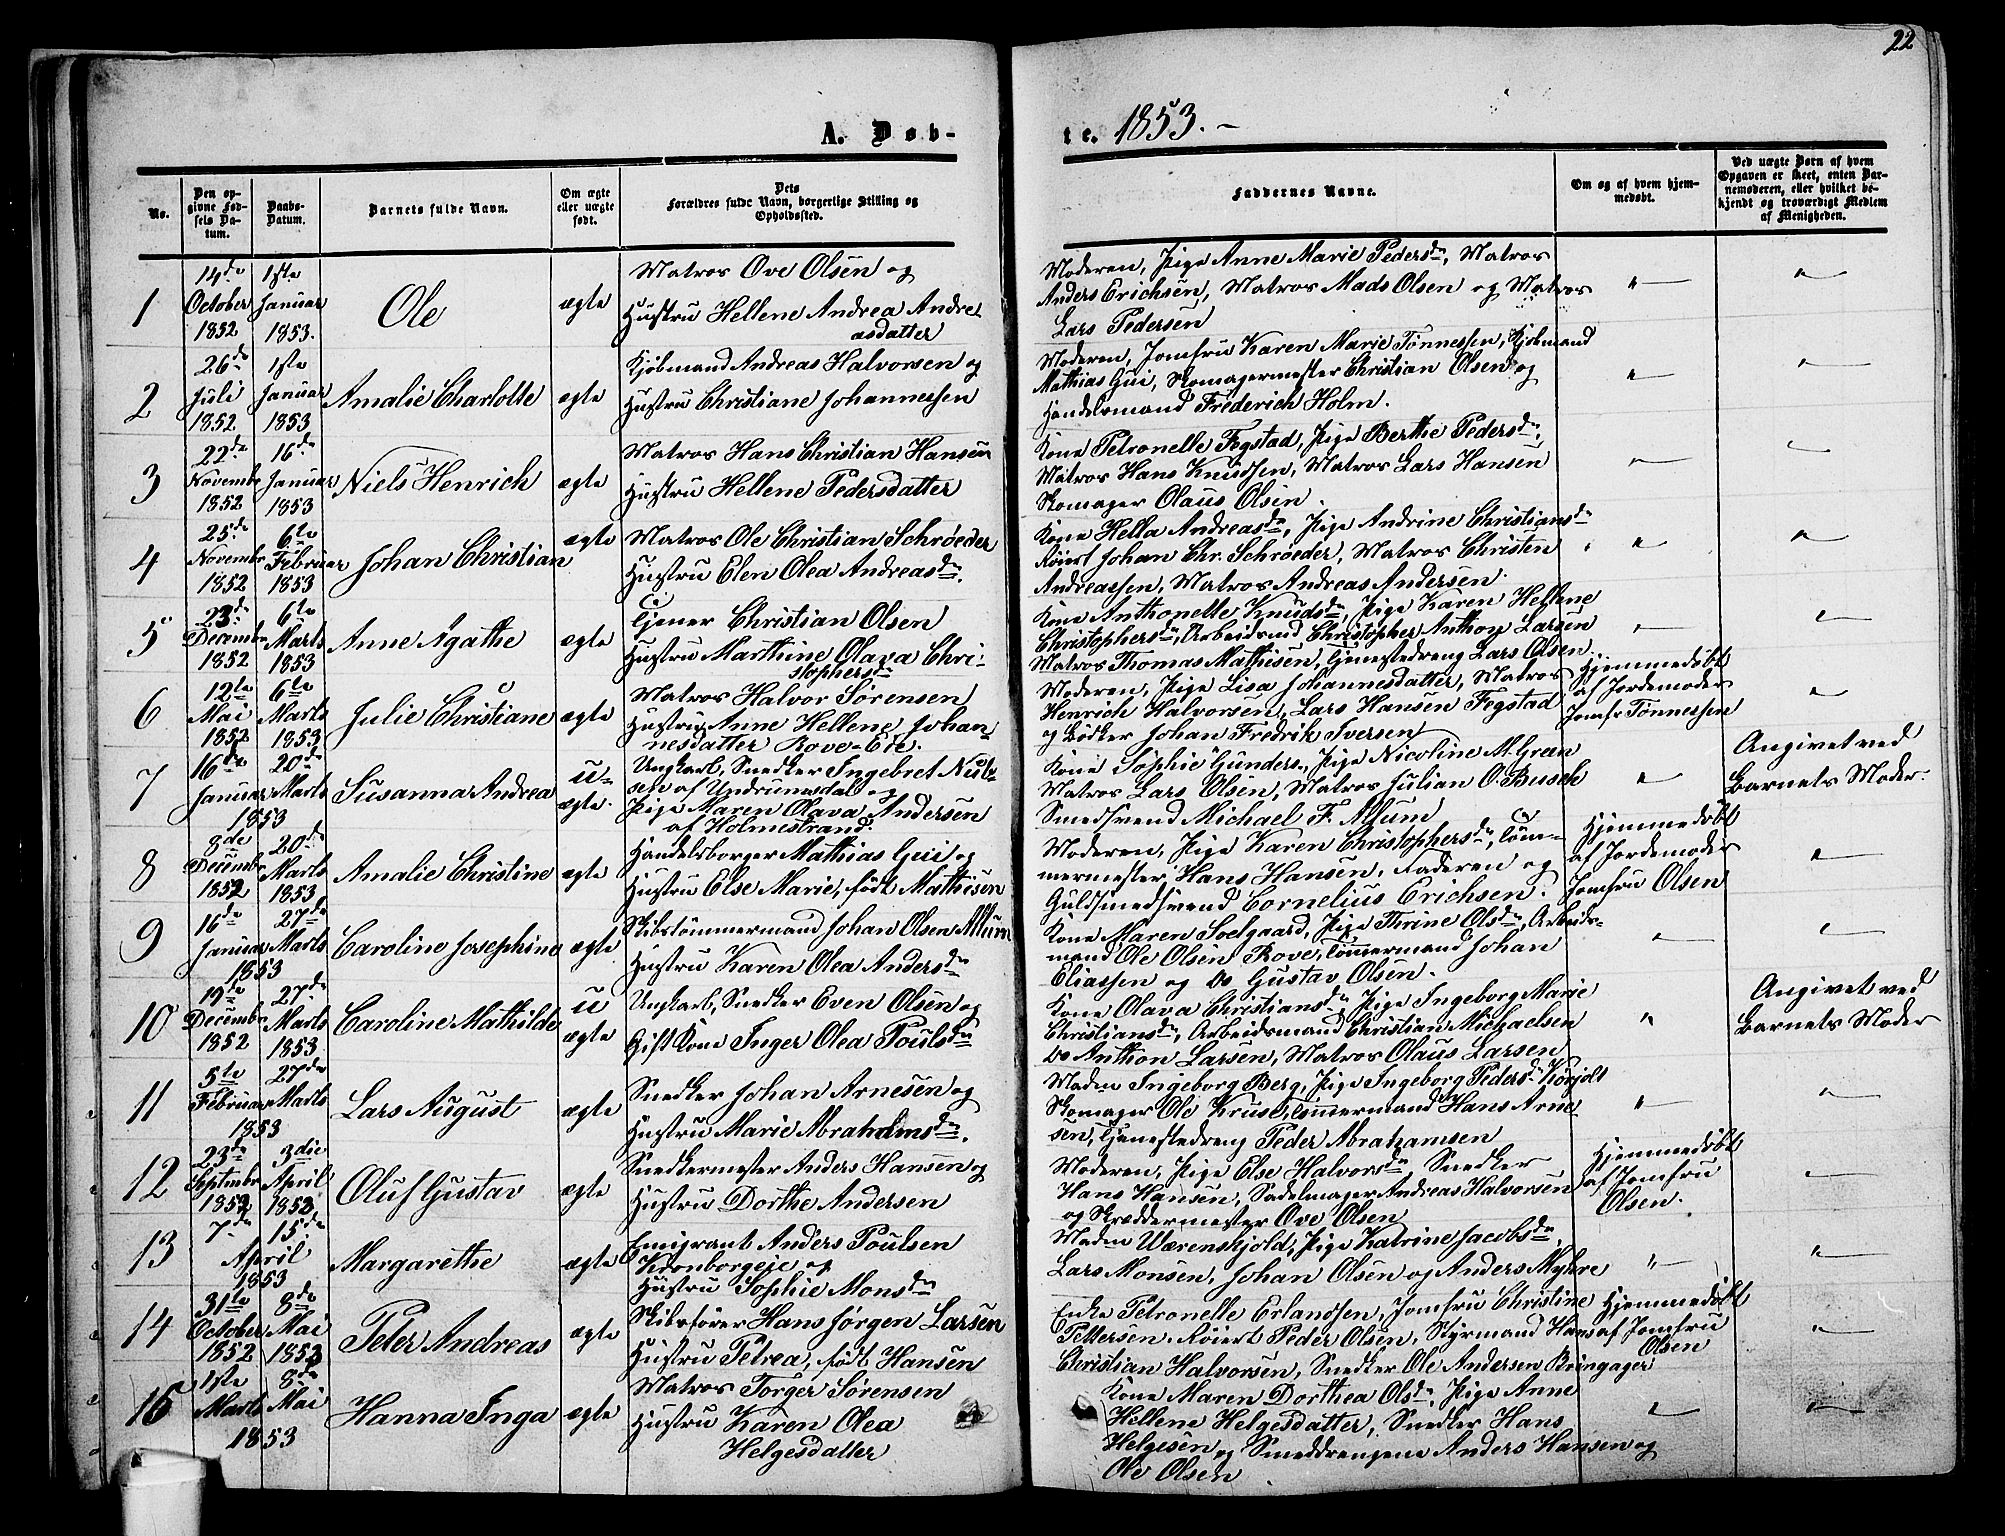 22
A. Døb-
te. 1853.-
No.
Den op-
givne Fød-
sels Da-
tum.
Daabs-
Datum.
Barnets fulde Navn.
Om ægte
eller uægte
født.
Dets
Forældres fulde Navn, borgerlige Stilling og
Opholdssted.
Faddernes Navne.
Om og af hvem hjem-
medøbt.
Ved uægte Børn af hvem
Opgaven er skeet, enten Bar-
nemoderen, eller hvilket be-
kjendt og troværdigt Medlem
af Menigheden.
1
14de October 1852
1ste Januar 1853.
Ole
ægte
Matros Ove Olsen og
Hustru Hellene Andrea Andre
asdatter
Moderen, Pige Anne Marie Pedersdr, Matros
Anders Erichsen, Matros Mads Olsen og Matros
Lars Pedersen
"
"
2
26de Juli 1852.
1ste Januar 1853
Amalie Charlotte
ægte
Kjøbmand Andreas Halvorsen og
Hustru Christiane Johannessen
Moderen, Jomfru Karen Marie Tønnessen, Kjøbmand
Mathias Gui, Skomagermester Christian Olsen og
Handelsmand Frederich Holm.
"
"
3
22de Novembr 1852
16de Januar 1853
Niels Henrich
ægte
Matros Hans Christian Hansen
Hustru Hellene Pedersdatter
Kone Petronelle Fegstad, Pige Berthe Pedersdr,
Matros Hans Knudsen, Matros Lars Hansen
Skomager Olaus Olsen.
"
"
4
25de Novembr 1852
6te Februar 1853
Johan Christian
ægte
Matros Ole Christian Schrøeder
Hustru Elen Olea Andreasdr.
Kone Hella Andreasdr, Pige Andrine Christiansdr
Røiert Johan Chr. Schrøeder, Matros Christen
Andreassen, Matros Andreas Andersen.
"
"
5
23de Decembr 1852
6te Marts 1853
Anne Agathe
ægte
Tjener Christian Olsen
Hustru Marthine Olava Chri-
stophersdr
Kone Anthonette Knudsdr, Pige Karen Hellene
Christophersdr, Arbeidsmd Christopher Anthon Larsen
Matros Thomas Mathisen, Tjenestedreng Lars Olsen.
"
"
6
12te Mai 1852
6te Marts 1853
Julie Christiane
ægte
Matros Halvor Sørensen
Hustru Anne Hellene Johan-
nesdatter Rove-Eie.
Moderen, Pige Lisa Johannesdatter, Matros
Henrich Halvorsen, Lars Hansen Fegstad
og Bødker Johan Fredrik Iversen
Hjemmedøbt
af Jordemoder
Jomfr Tønnessen
"
7
16de Januar 1853
20de Marts
Susanna Andrea
u-
ægte.
Ungkarl, Snedker Ingebret Nil-
sen af Undrumsdal og
Pige Maren Olava Andersen
af Holmestrand.
Kone Sophie Gunders., Pige Nicoline M. Green
Matros Lars Olsen, Matros Julian O. Bussch
Smedsvend Michael F. Allum
"
Angivet ved
Barnets Moder.
8
8de Decembr 1852
20de Marts 1853
Amalie Christine
ægte
Handelsborger Mathias Geii og
Hustru Else Marie, født Mathisen
Moderen, Pige Karen Christophersdr, Tøm-
mermester Hans Hansen, Faderen og
Guldsmedsvend Cornelius Erichsen.
Hjemmedøbt
af Jordemoder
Jomfru Olsen
"
9
16de Januar 1853
27de Marts
Caroline Josephine
ægte
Skibstømmermand Johan Olsen Allum
Hustru Karen Olea Andersdr
Kone Maren Soelgaard, Pige Thrine Olsdr, Arbeids-
mand Ole Olsen Rove, Tømmermand Johan
Eliassen og Do Gustav Olsen.
"
"
10
19de Decembr 1852
27de Marts 1853
Caroline Mathilde
u
ægte
Ungkarl, Snedker Even Olsen og
Gift Kone Inger Olea Poulsdr
Kone Olava Christiansdr Pige Ingeborg Marie
Christiansdr, Arbeidsmand Christian Michaelsen
Do Anthon Larsen, Matros Olaus Larsen
"
Angivet ved
Barnets Moder
11
5te Februar 1853
27de Marts
Lars August
ægte
Snedker Johan Arnesen og
Hustru Marie Abrahamsdr.
Madm Ingeborg Berg, Pige Ingeborg Pedersdr
Skomager Ole Kruse, Tømmermand Hans Arne
sen, Tjenestedreng Peder Abrahamsen
"
"
12
23de Septembr 1852
3die April 1853
Oluf Gustav
ægte
Snedkermester Anders Hansen og
Hustru Dorthe Andersen
Moderen, Pige Else Halvorsdr, Snedker
Hans Hansen, Sadelmager Andreas Halvorsen
og Skræddermester Ove Olsen
Hjemmedøbt
af Jomfru
Olsen.
"
13
7de 15de
April
1853
Margarethe
ægte
Emigrant Anders Poulsen
Kronborgeje og
Hustru Sophie Monsdr
Madm Wærenskjold, Pige Katrine Jacobsdr,
Lars Monsen, Johan Olsen og Anders Myhre
"
"
14
31te October 1852
8de Mai 1853
Peter Andreas
ægte
Skibsfører Hans Jørgen Larsen
Hustru Petrea, født Hansen
Enke Petronelle Erlandsen, Jomfru Christine
Pettersen. Røiert Peder Olsen, Styrmand Hans
Christian Halvorsen, Snedker Ole Andersen Bringager
Hjemmedøbt
af Jomfru
Olsen
"
15
1ste Marts 1853
8de Mai
Hanna Inga
ægte
Matros Torger Sørensen
Hustru Karen Olea
Helgesdatter
Kone Maren Dorthea Olsdr, Pige Anne
Hellene Helgesdatter, Snedker Hans
Helgesen og Smeddrengene Anders Hansen og
Ole Olsen.
"
"